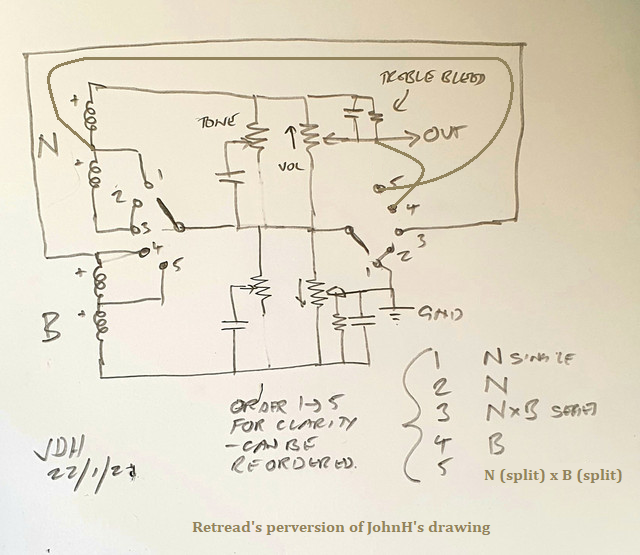 TREBLE BLEED
+
TONE
N
+
VOL
OUT
1
2
3
5
4
3
2
1
4
5
+
GND
+
B
1 N SINGLE
2 N
3 N x B SERIES
4 B
5 N (split) x B (split)
ORDER 1→5
FOR CLARITY
- CAN BE
REORDERED.
JDH
Retread's perversion of JohnH's drawing